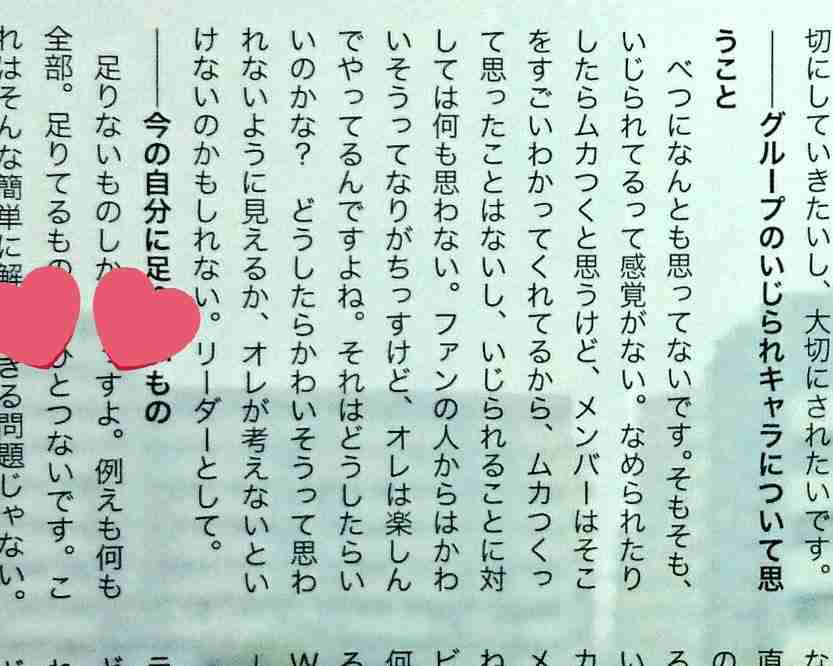 切にしていきたいし、大切にされたいです。
――グループのいじられキャラについて思
うこと
べつになんとも思ってないです。そもそも、
いじられてるって感覚がない。なめられたり
したらムカつくと思うけど、メンバーはそこ
をすごいわかってくれてるから、ムカつくっ
て思ったことはないし、いじられることに対
しては何も思わない。ファンの人からはかわ
いそうってなりがちっすけど、オレは楽しん
でやってるんですよね。それはどうしたらい
いのかな？　どうしたらかわいそうって思わ
れないように見えるか、オレが考えないとい
けないのかもしれない。リーダーとして。
――今の自分に足 もの
足りないものしか すよ。例えも何も
全部。足りてるもの ひとつないです。こ
れはそんな簡単に解 きる問題じゃない。